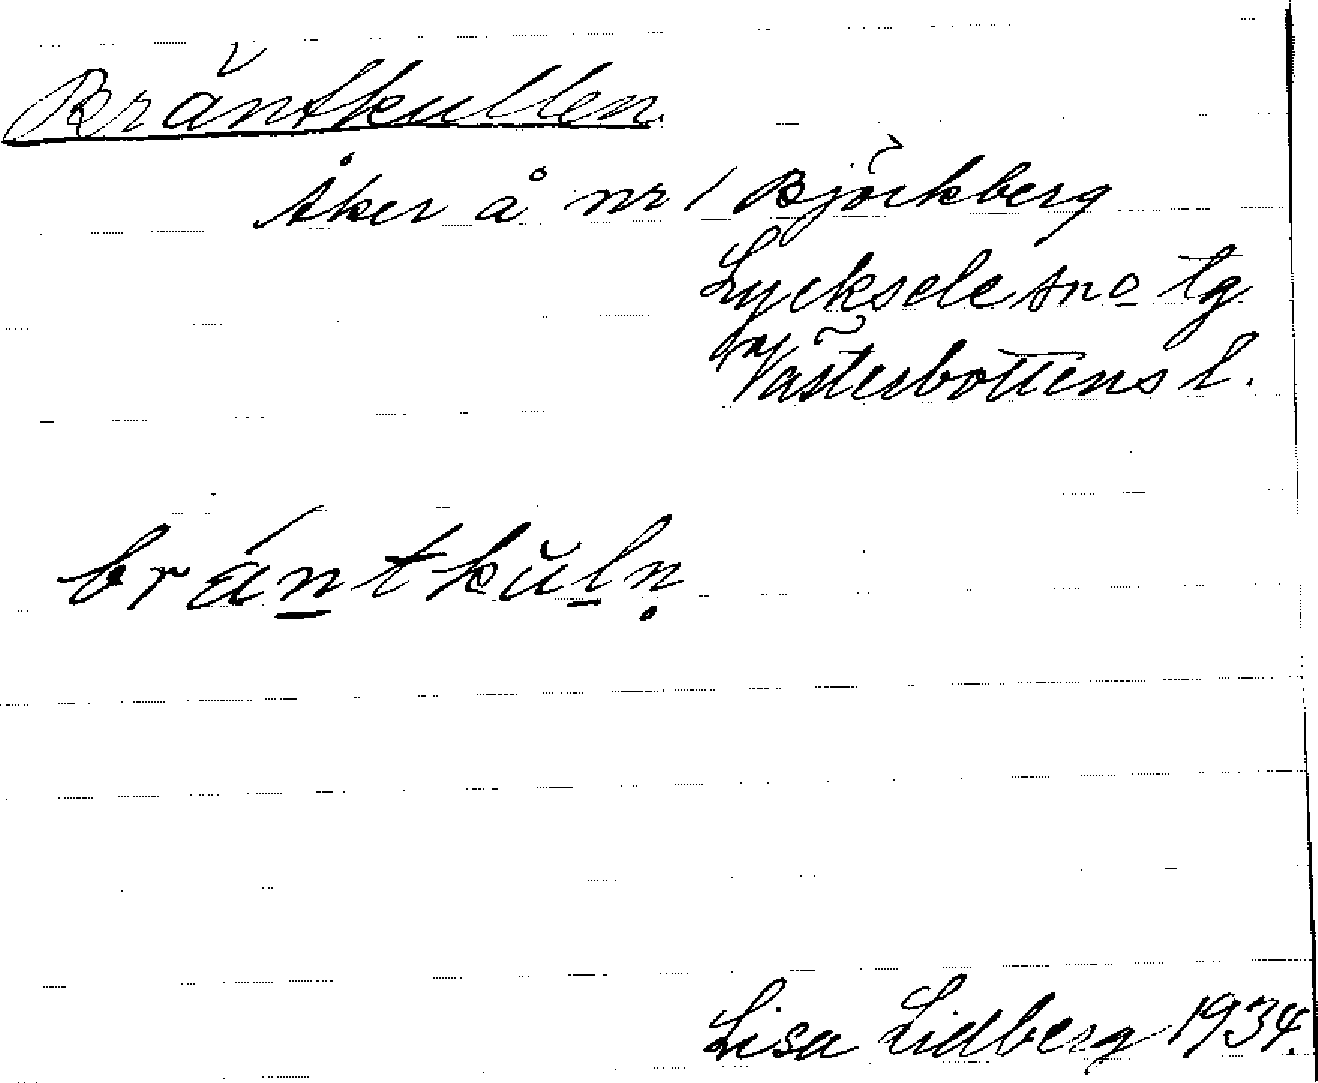 Bräntkullen.
Åker å nr 1 Björkberg
Lycksele sn o tg
Västerbottens l.
brántkŭln̥
Lisa Lidberg 1934.